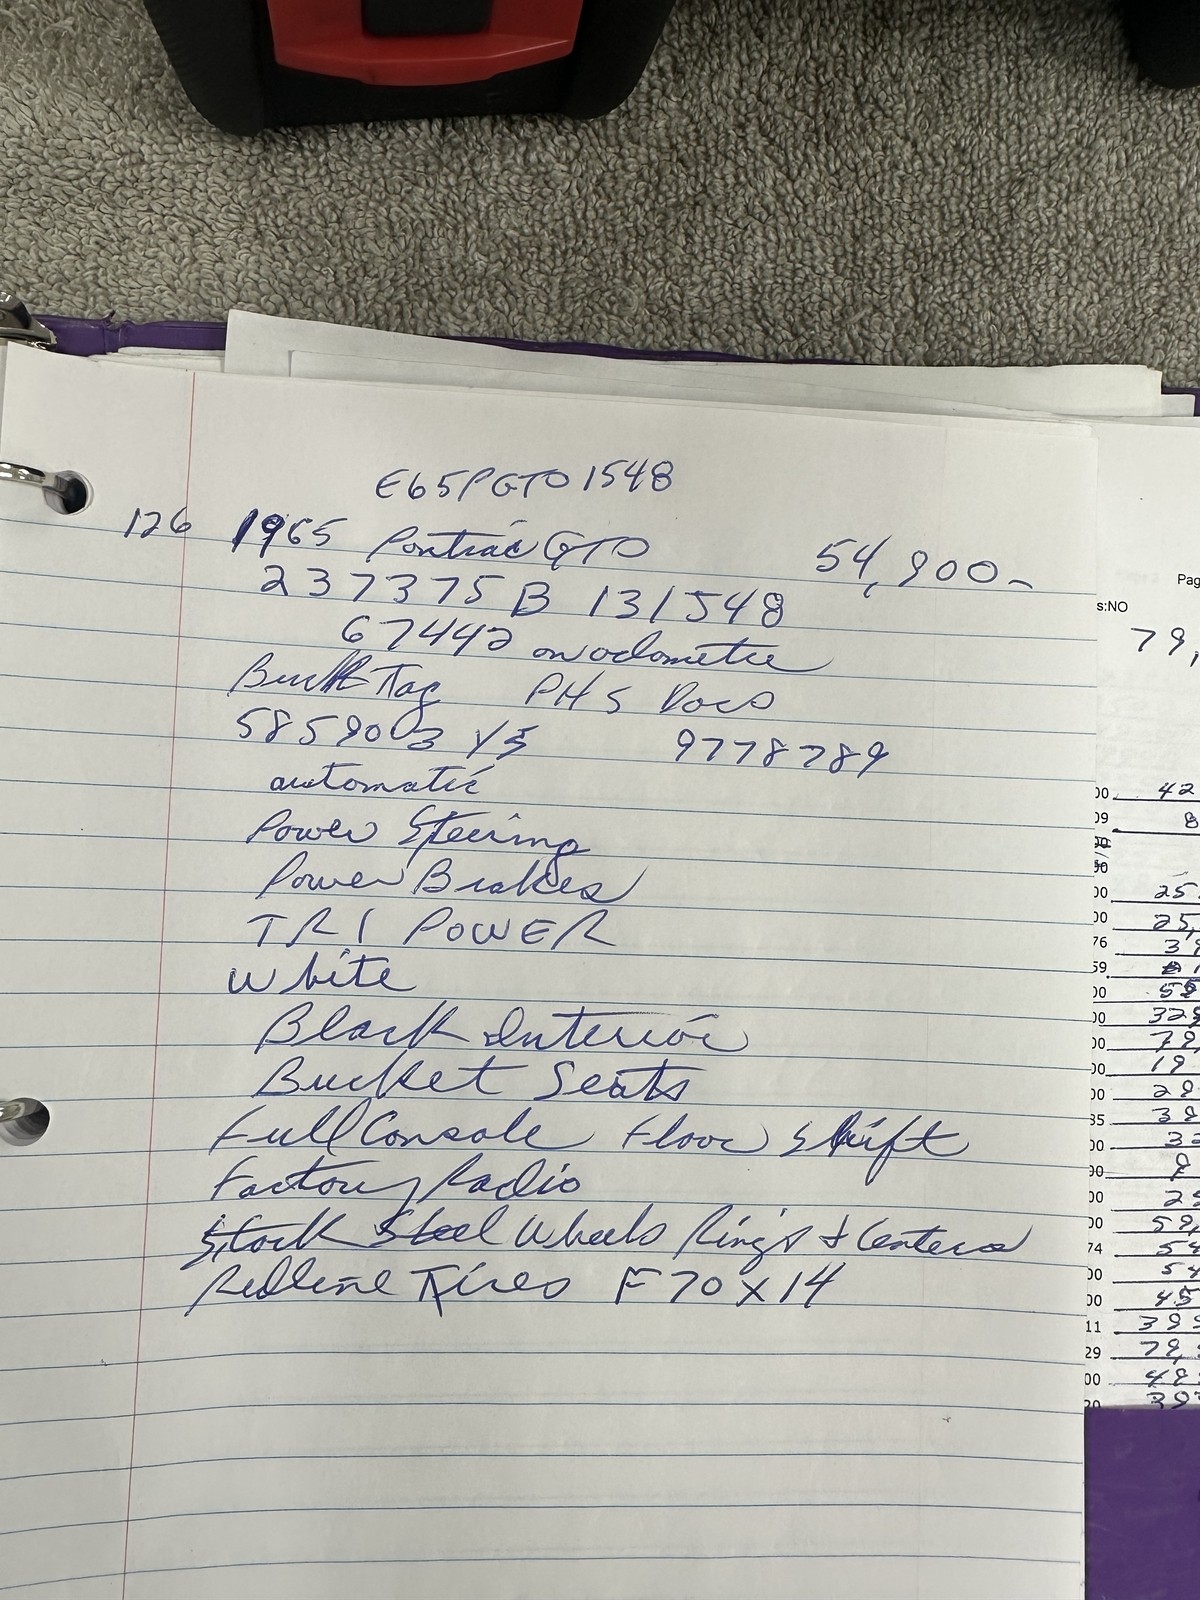 E65PGTO1548
126 1965 Pontiac GTO 54,900-
237375B131548
67442 on odometer
Buck Tag PHS Docs
5859003 YS 9778789
automatic
Power Steering
Power Brakes
TRI POWER
White
Black Interior
Bucket Seats
Full Console Floor Shift
Factory Radio
Stock Steel Wheels Rings & Centers
Redline Tires F70x14
Pag
s:NO
79,
00 42
09 8
00 25
00 25,
76 39
59
00 59
00 328
00 79,
00 19
00 29
85 39
00 32
90 9
00 29
00 59,
74 54
00 54
00 45
11 399
29 79,
00 49
20 39